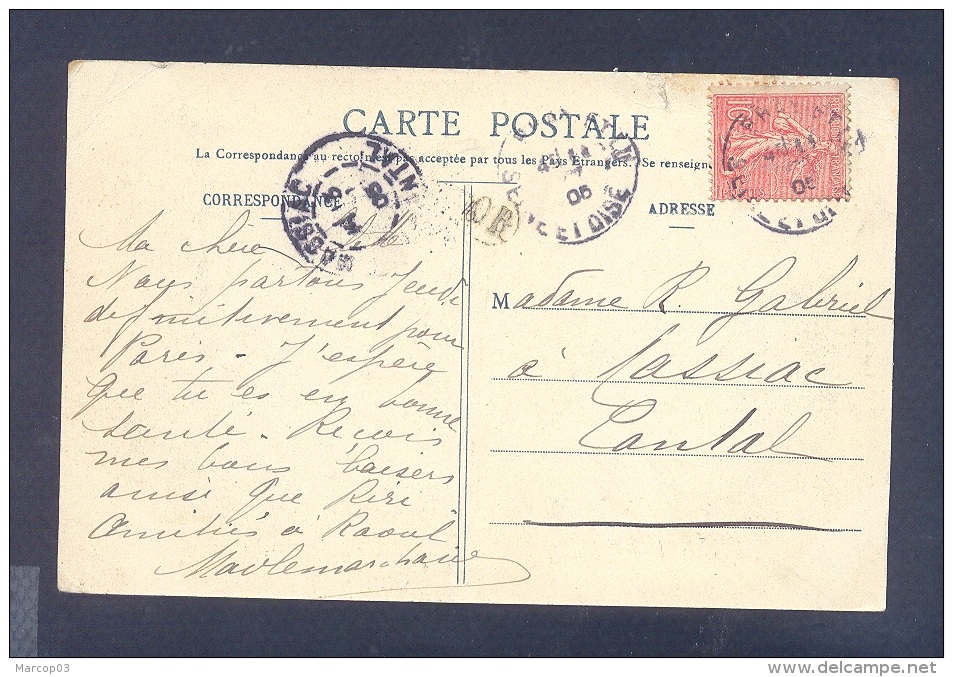 CARTE POSTALE
La Correspondance au recto n'est pas acceptée par tous les Pays Etrangers. (Se renseigne
CORRESPONDANCE
ADRESSE
10c
SEINE ET OISE
05
MASSIAC
CANTAL
OR
Ma chère
Nous partons Jeudi
définitivement pour
Paris - J'espère
que tu es en bonne
santé - Reçois
mes bons baisers
ainsi que Riri
Amitiés à Raoul
Madame R. Gabriel
à Massiac
Cantal
Marcop03
delcampe.net